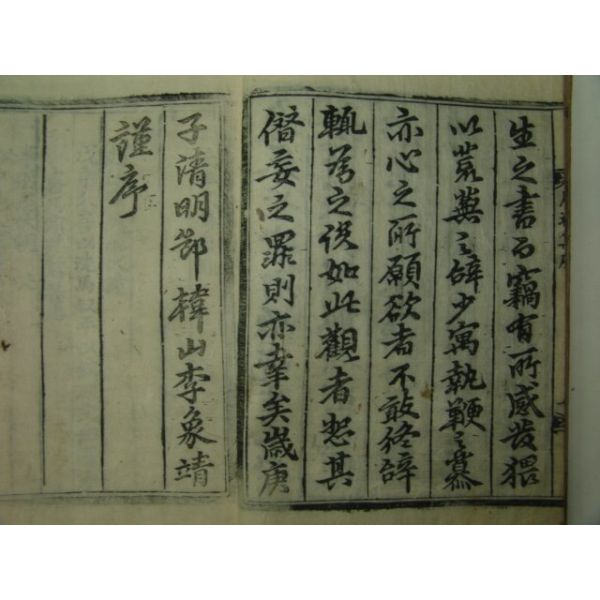 生之書而竊有所感發猥
以荒蕪之辭少寓執鞭之慕
亦心之所願欲者不敢終辭
輒為之說如此觀者恕其
僭妄之罪則亦幸矣歲庚
子清明節韓山李象靖
謹序